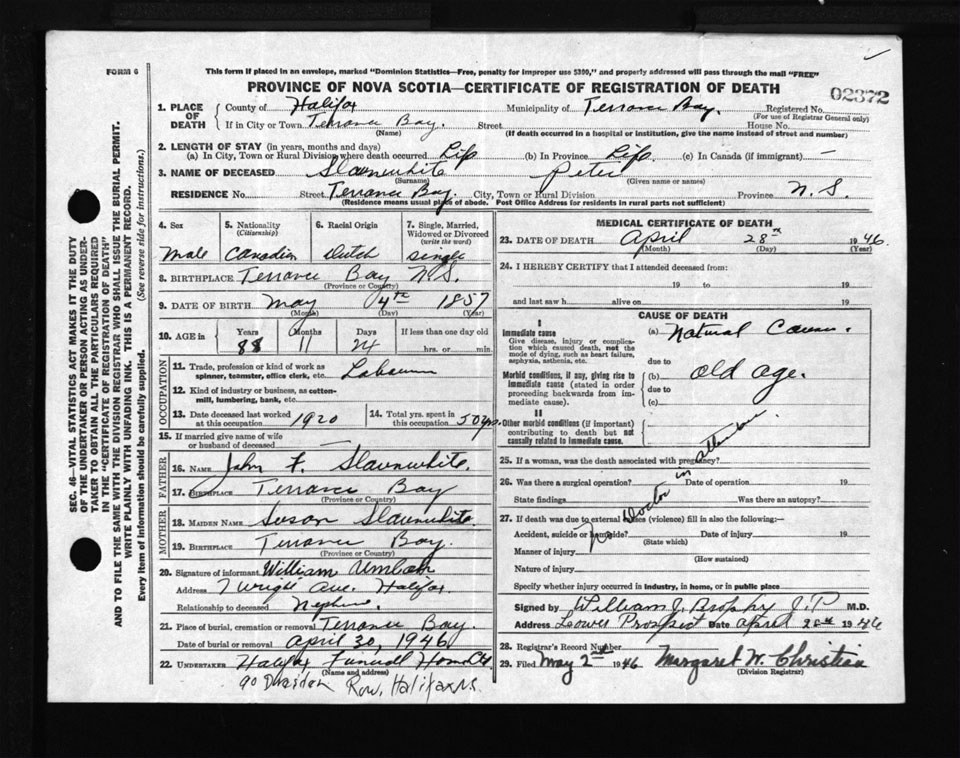 FORM 6
This form if placed in an envelope, marked "Dominion Statistics—Free, penalty for improper use $300," and properly addressed will pass through the mail "FREE"
PROVINCE OF NOVA SCOTIA—CERTIFICATE OF REGISTRATION OF DEATH
02372
1. PLACE OF DEATH
County of Halifax Municipality of Terrance Bay. Registered No.
(For use of Registrar General only)
If in City or Town Terrance Bay. Street House No.
(Name) (If death occurred in a hospital or institution, give the name instead of street and number)
2. LENGTH OF STAY (in years, months and days)
(a) In City, Town or Rural Division where death occurred Life (b) In Province Life. (c) In Canada (if immigrant) —
3. NAME OF DECEASED Slaunwhite Peter
(Surname) (Given name or names)
RESIDENCE No. Street Terrance Bay. City, Town or Rural Division Province N.S.
(Residence means usual place of abode. Post Office Address for residents in rural parts not sufficient)
4. Sex 5. Nationality (Citizenship) 6. Racial Origin 7. Single, Married, Widowed or Divorced (write the word)
Male Canadian Dutch single
8. BIRTHPLACE Terrance Bay N.S.
(Province or Country)
9. DATE OF BIRTH May 4th 1857
(Month) (Day) (Year)
10. AGE in Years Months Days If less than one day old
88 11 24 hrs. or min.
OCCUPATION
11. Trade, profession or kind of work as spinner, teamster, office clerk, etc.
12. Kind of industry or business, as cotton-mill, lumbering, bank, etc.
13. Date deceased last worked at this occupation 1920 14. Total yrs. spent in this occupation 50 yrs.
15. If married give name of wife or husband of deceased
FATHER
16. NAME John F. Slaunwhite.
17. Birthplace Terrance Bay
(Province or Country)
MOTHER
18. MAIDEN NAME Susan Slaunwhite
19. BIRTHPLACE Terrance Bay.
(Province or Country)
20. Signature of informant William Umlah
Address 7 Wright Ave. Halifax.
Relationship to deceased Nephew.
21. Place of burial, cremation or removal Terrance Bay.
Date of burial or removal April 30, 1946
22. UNDERTAKER Halifax Funeral Home
(Name and address)
90 Row, Halifax N.S.
MEDICAL CERTIFICATE OF DEATH
23. DATE OF DEATH April 28th 1946.
(Month) (Day) (Year)
24. I HEREBY CERTIFY that I attended deceased from:
19 to 19
and last saw h alive on 19
CAUSE OF DEATH
I
Immediate cause
Give disease, injury or complication which caused death, not the mode of dying, such as heart failure, asphyxia, asthenia, etc.
(a) Natural Causes.
due to
Morbid conditions, if any, giving rise to immediate cause (stated in order proceeding backwards from immediate cause).
(b) old age.
due to
(c)
II
Other morbid conditions (if important) contributing to death but not causally related to immediate cause.
25. If a woman, was the death associated with pregnancy?
26. Was there a surgical operation? Date of operation 19
State findings Was there an autopsy?
27. If death was due to external causes (violence) fill in also the following:—
Accident, suicide or homicide? Date of injury 19
(State which)
Manner of injury
(How sustained)
Nature of injury
Specify whether injury occurred in industry, in home, or in public place
No Doctor in attendance
Signed by William J. Brophy J.P. M.D.
Address Lower Prospect Date April 28th 1946
28. Registrar's Record Number
29. Filed May 2nd 1946 Margaret W. Christian
(Division Registrar)
SEC. 46—VITAL STATISTICS ACT MAKES IT THE DUTY
OF THE UNDERTAKER OR PERSON ACTING AS UNDER-
TAKER TO OBTAIN ALL THE PARTICULARS REQUIRED
IN THE "CERTIFICATE OF REGISTRATION OF DEATH"
AND TO FILE THE SAME WITH THE DIVISION REGISTRAR WHO SHALL ISSUE THE BURIAL PERMIT.
WRITE PLAINLY WITH UNFADING INK. THIS IS A PERMANENT RECORD.
Every item of information should be carefully supplied. (See reverse side for instructions.)